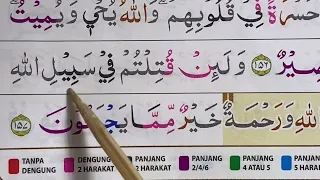 حَسْرَةً فِيْ قُلُوْبِهِمْ ۗ وَاللّٰهُ يُحْيٖ وَيُمِيْتُ ۗ
صِيْرٌ ١٥٦ وَلَئِنْ قُتِلْتُمْ فِيْ سَبِيْلِ اللّٰهِ
اللّٰهِ وَرَحْمَةٌ خَيْرٌ مِّمَّا يَجْمَعُوْنَ ١٥٧
TANPA DENGUNG
DENGUNG 2 HARAKAT
PANJANG 2 HARAKAT
PANJANG 2/4/6
PANJANG 4 ATAU 5
PANJANG 5 HARAKAT